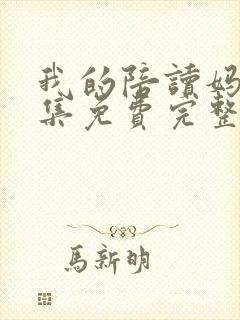 我的陪讀妈
集免费完整
馬新明